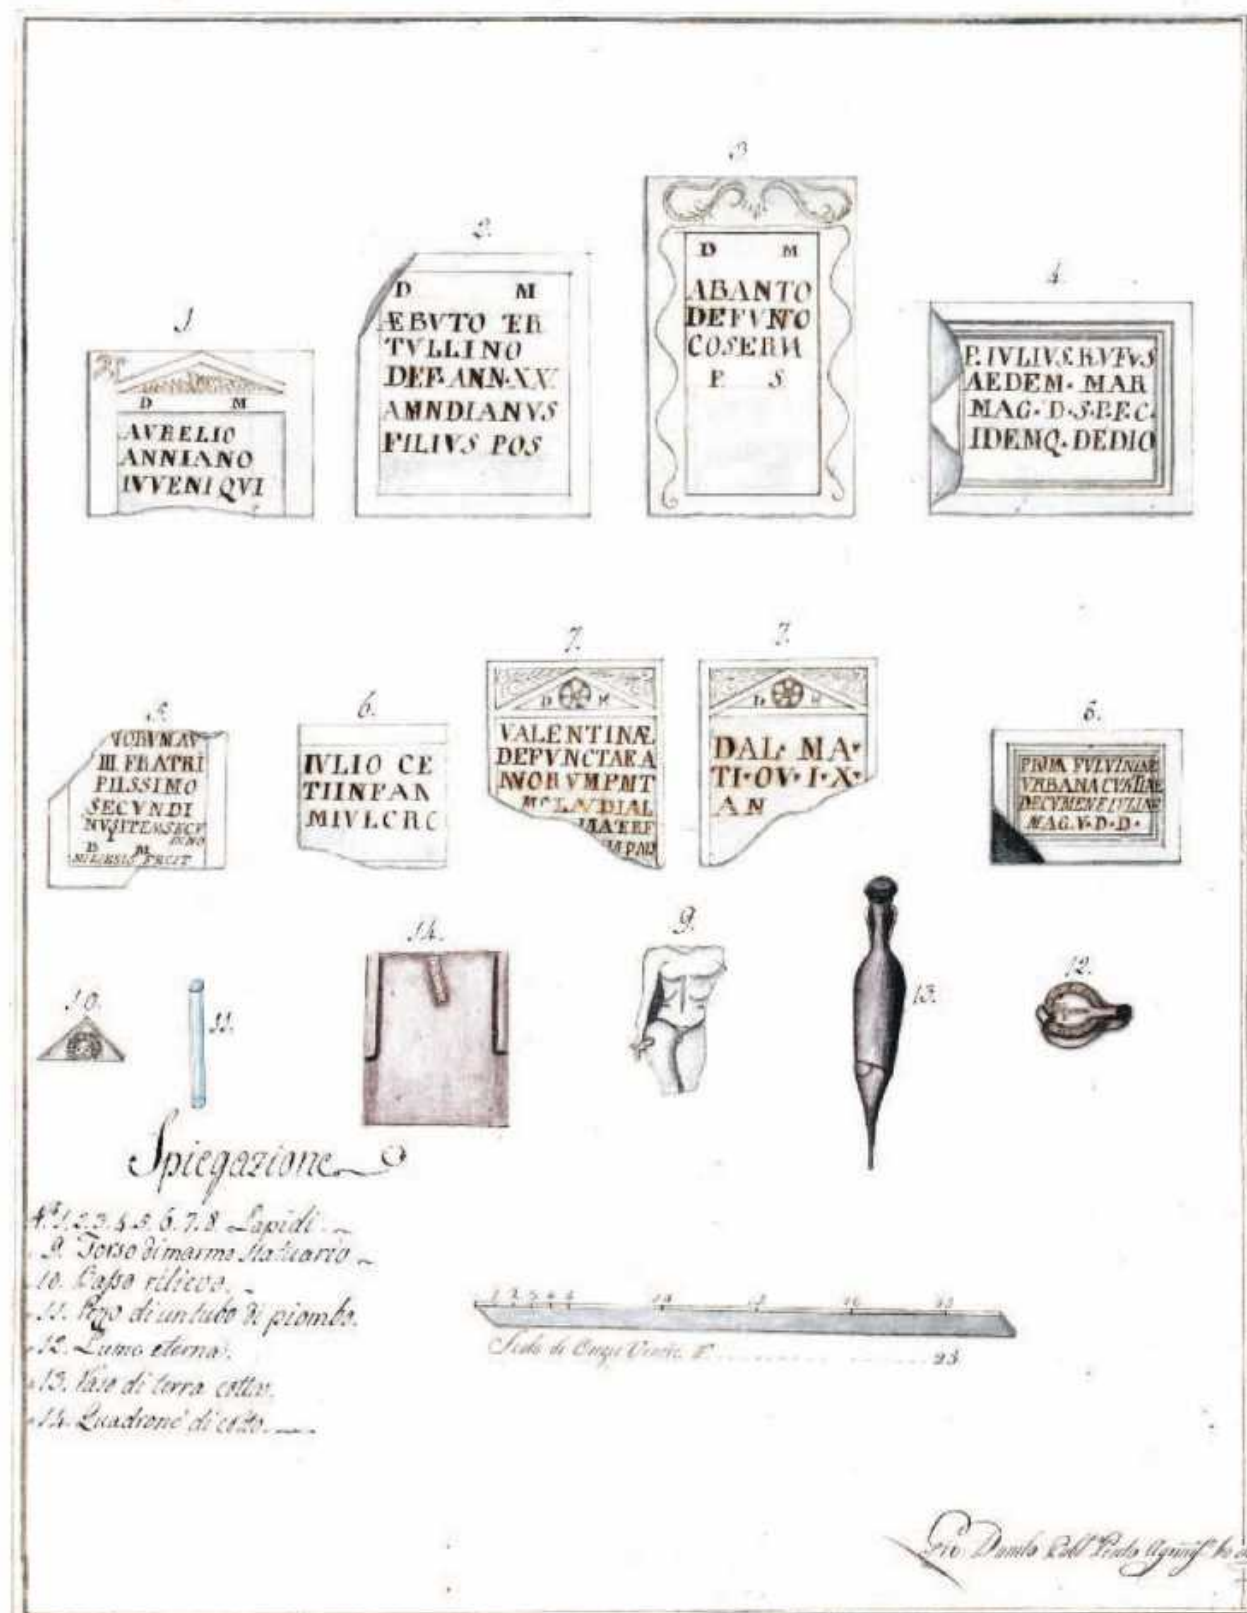 1.
D M
AVRELIO
ANNIANO
IVVENI QVI
2.
D M
ÆBVTO TER
TVLLINO
DEF· ANN·XX
AMNDIANVS
FILIVS POS
3.
D M
ABANTO
DEFVNTO
COSERVI
P S
4.
P. IVLIVS. RVFVS
AEDEM· MAR
MAG· D·S·P.F.C·
IDEMQ· DEDIC
5.
III FRATRI
PIISSIMO
SECVNDI
D M
6.
IVLIO CE
TIINFAN
MIVLCRC
7.
D M
VALENTINÆ
DEFVNCTAE A
7.
D M
DAL· MA·
TI·OV·I·X·
AN
8.
VRBANA
MAG. V· D· D·
14.
9.
13.
12.
10.
11.
Spiegazione
N.i 1. 2. 3. 4. 5. 6. 7. 8. Lapidi.
9. Torso di marmo statuario
10. Basso rilievo.
11. Pezzo di un tubo di piombo.
12. Lume eterno.
13. Vaso di terra cotta.
14. Quadrone di cotto.
1 2 3 4 5 10 15 20
Scala di Oncie 25
Gio. Danilo Pubb.